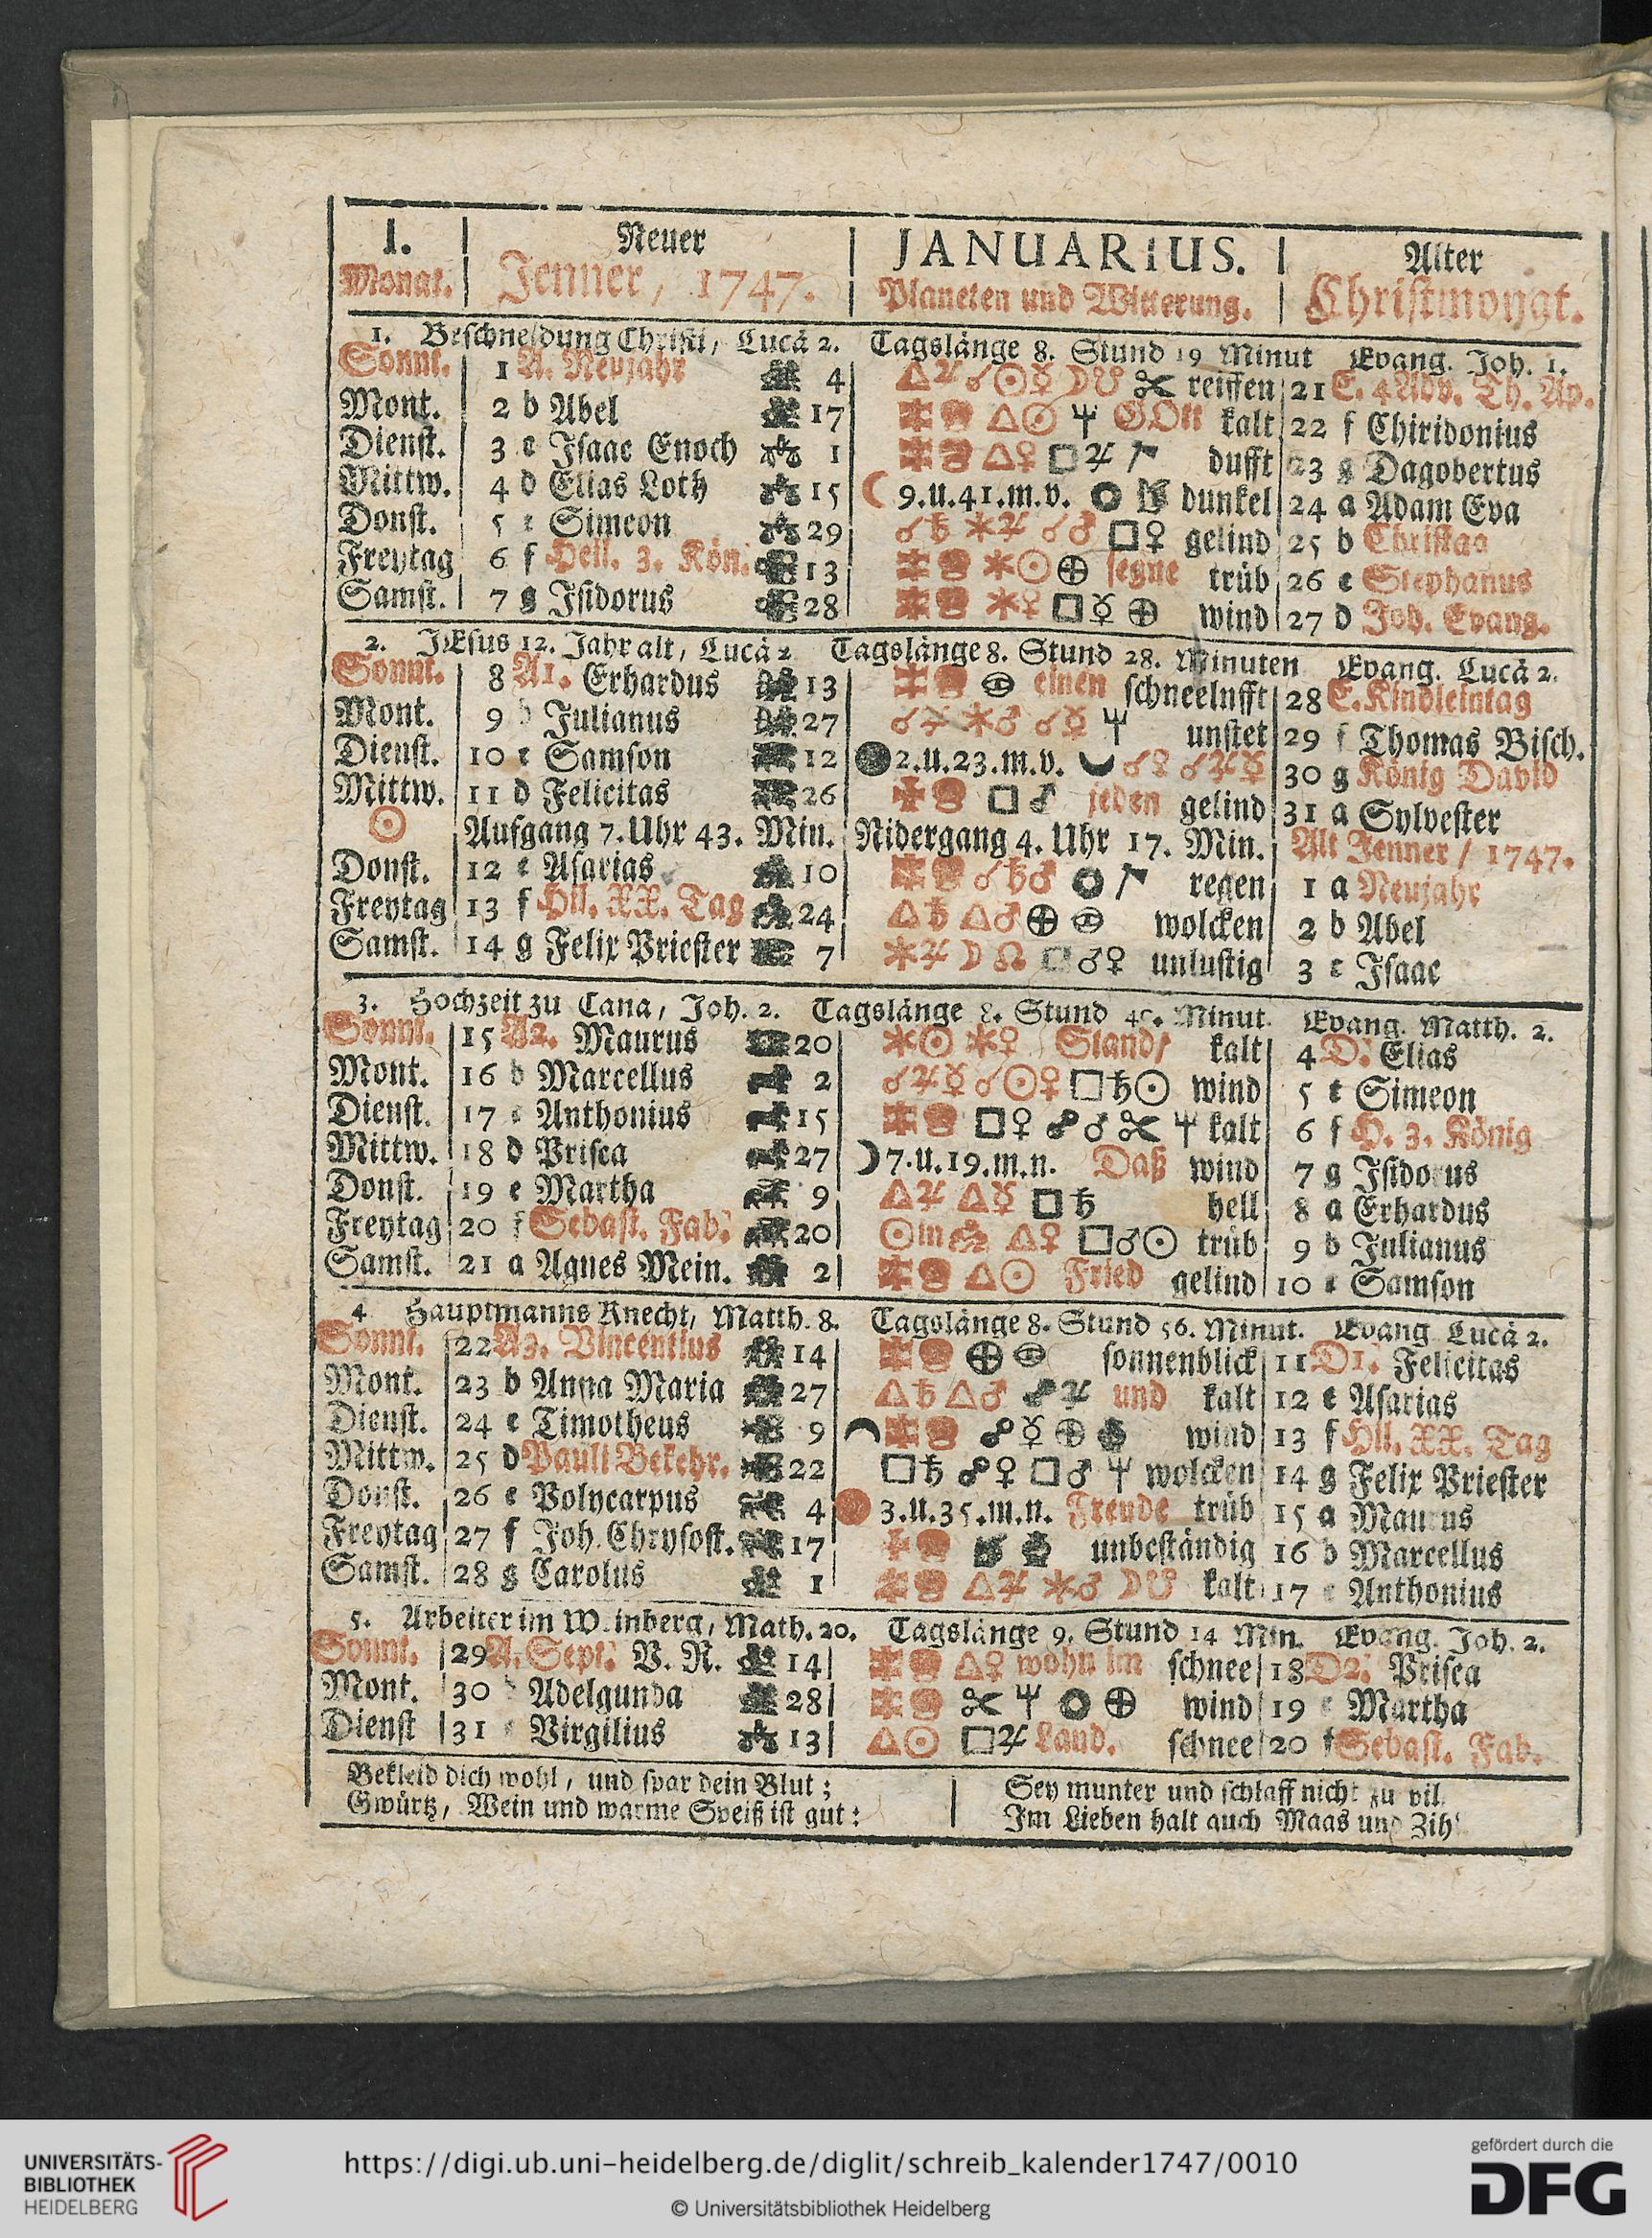 1. Neuer JANUARIUS. Alter
Monat. Jenner, 1747. Planeten und Witterung. Christmonat.
1. Beschneidung Christi, Lucä 2. Tagslänge 8. Stund 19 Minut Evang. Joh. 1.
Sonnt. 1 A. Neujahr 4 △♃ ☌☉☿ ☽☋ reiffen 21 E. 4 Adv. Th. Ap.
Mont. 2 b Abel 17 △☉ GOtt kalt 22 f Chiridonius
Dienst. 3 c Isaac Enoch 1 △♀ □♃ dufft 23 g Dagobertus
Mittw. 4 d Elias Loth 15 ☾ 9.u.41.m.v. dunkel 24 a Adam Eva
Donst. 5 e Simeon 29 ☌♄ ✶♃ ☌♂ □♀ gelind 25 b Christag
Freytag 6 f Heil. 3. Kön. 13 ✶☉ ⊕ segne trüb 26 c Stephanus
Samst. 7 g Isidorus 28 ✶♀ □☿ ⊕ wind 27 d Joh. Evang.
2. JEsus 12. Jahr alt, Lucä 2 Tagslänge 8. Stund 28. Minuten Evang. Lucä 2.
Sonnt. 8 A1. Erhardus 13 einen schneelufft 28 E. Kindleintag
Mont. 9 b Julianus 27 ☌♃ ✶♂ ☌☿ unstet 29 f Thomas Bisch.
Dienst. 10 c Samson 12 ● 2.u.23.m.v. ☌♀ ☌♃☿ 30 g König David
Mittw. 11 d Felicitas 26 □♂ jeden gelind 31 a Sylvester
☉ Aufgang 7. Uhr 43. Min. Nidergang 4. Uhr 17. Min. Alt Jenner / 1747.
Donst. 12 e Asarias 10 ☌♄♂ regen 1 a Neujahr
Freytag 13 f Hil. XX. Tag 24 △♄ △♂ ⊕ wolcken 2 b Abel
Samst. 14 g Felix Priester 7 ✶♃ ☽☊ □♂♀ unlustig 3 c Isaac
3. Hochzeit zu Cana, Joh. 2. Tagslänge 8. Stund 40. Minut. Evang. Matth. 2.
Sonnt. 15 A2. Maurus 20 ✶☉ ✶♀ Stand/ kalt 4 D. Elias
Mont. 16 b Marcellus 2 ☌♃☿ ☌☉♀ □♄☉ wind 5 e Simeon
Dienst. 17 c Anthonius 15 □♀ ☍♂ kalt 6 f H. 3. König
Mittw. 18 d Prisca 27 ☽ 7.u.19.m.n. Daß wind 7 g Isidorus
Donst. 19 e Martha 9 △♃ △☿ □♄ hell 8 a Erhardus
Freytag 20 f Sebast. Fab. 20 ☉ in △♀ □♂☉ trüb 9 b Julianus
Samst. 21 a Agnes Mein. 2 △☉ Fried gelind 10 c Samson
4 Hauptmanns Knecht, Matth. 8. Tagslänge 8. Stund 56. Minut. Evang Lucä 2.
Sonnt. 22 A3. Vincentius 14 ⊕ sonnenblick 11 D1. Felicitas
Mont. 23 b Anna Maria 27 △♄ △♂ ☍♃ und kalt 12 e Asarias
Dienst. 24 c Timotheus 9 ☍☿ ⊕ wind 13 f Hil. XX. Tag
Mittw. 25 d Pauli Bekehr. 22 □♄ ☍♀ □♂ wolcken 14 g Felix Priester
Donst. 26 e Polycarpus 4 3.u.35.m.n. Freude trüb 15 a Maurus
Freytag 27 f Joh. Chrysost. 17 unbeständig 16 b Marcellus
Samst. 28 g Carolus 1 △♃ ✶♂ ☽☋ kalt 17 c Anthonius
5. Arbeiter im Weinberg, Math. 20. Tagslänge 9. Stund 14 Min. Evang. Joh. 2.
Sonnt. 29 A. Sept. V. R. 14 △♀ wohn im schnee 18 D2. Prisca
Mont. 30 b Adelgunda 28 ⊕ wind 19 e Martha
Dienst 31 c Virgilius 13 △☉ □♃ Land. schnee 20 f Sebast. Fab.
Bekleid dich wohl, und spar dein Blut;
Gwürtz, Wein und warme Speiß ist gut:
Sey munter und schlaff nicht zu vil.
Im Lieben halt auch Maas und Zihl
UNIVERSITÄTS-
BIBLIOTHEK
HEIDELBERG
https://digi.ub.uni-heidelberg.de/diglit/schreib_kalender1747/0010
© Universitätsbibliothek Heidelberg
gefördert durch die
DFG